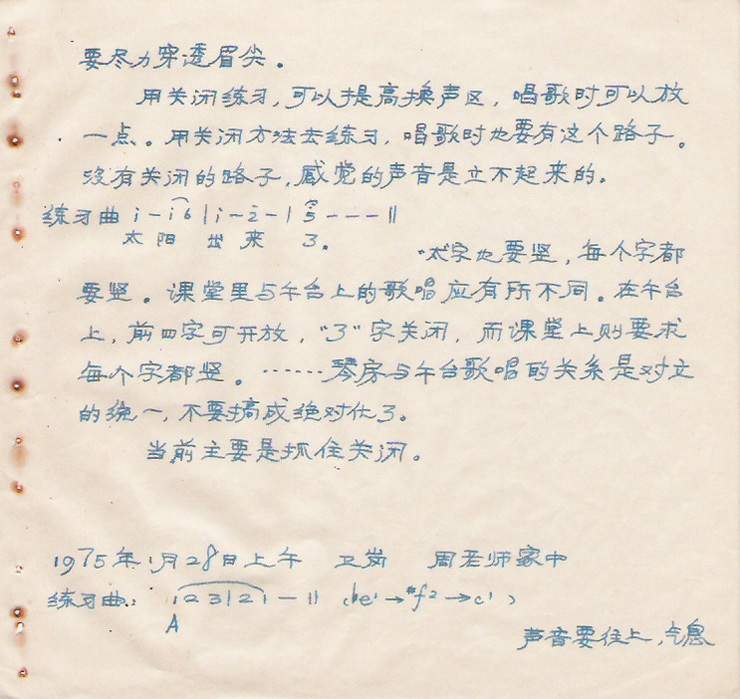 要尽力穿透眉尖。
用关闭练习，可以提高换声区，唱歌时可以放
一点。用关闭方法去练习，唱歌时也要有这个路子。
没有关闭的路子，感觉的声音是立不起来的。
练习曲 i - i 6 | i - 2 - | 5 - - - ||
太阳 出来 3。
“太”字也要竖，每个字都
要竖。课堂里与午台上的歌唱应有所不同。在午台
上，前四字可开放，“3”字关闭，而课堂上则要求
每个字都竖。……琴房与午台歌唱的关系是对立
的统一，不要搞成绝对化了。
当前主要是抓住关闭。
1975年1月28日上午 卫岗 周老师家中
练习曲： 1 2 3 | 2 1 - || (be¹→#f²→c¹)
A
声音要往上，气息